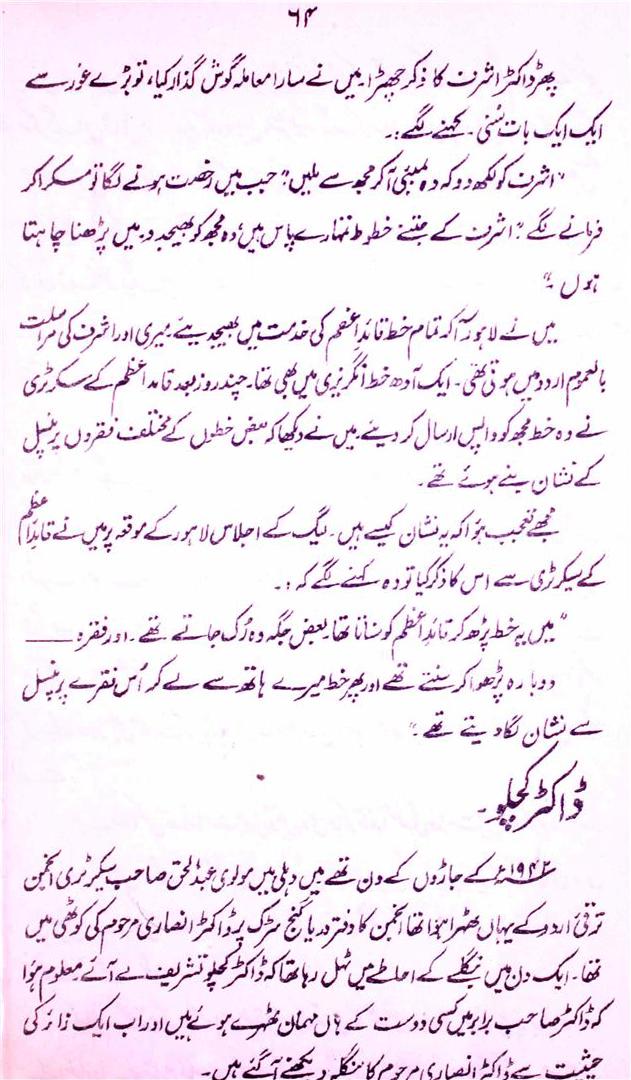 ۶۴
پھر ڈاکٹر اشرف کا ذکر چھیڑا۔ میں نے سارا معاملہ گوش گذار کیا، تو بڑے غور سے
ایک ایک بات سُنی۔ کہنے لگے :۔
"اشرف کو لکھ دو کہ وہ بمبئی آکر مجھ سے ملیں" جب میں رخصت ہونے لگا تو مسکرا کر
فرمانے لگے "اشرف کے جتنے خطوط تمہارے پاس ہیں، وہ مجھ کو بھیجدو۔ میں پڑھنا چاہتا
ہوں۔"
میں نے لاہور آ کہ تمام خط قائداعظم کی خدمت میں بھیجدیئے۔ میری اور اشرف کی مراسلت
بالعموم اردو میں ہوتی تھی۔ ایک آدھ خط انگریزی میں بھی تھا۔ چند روز بعد قائداعظم کے سکرٹری
نے وہ خط مجھ کو واپس ارسال کر دیئے۔ میں نے دیکھا کہ بعض خطوں کے مختلف فقروں پر پنسل
کے نشان بنے ہوئے تھے۔
مجھے تعجب ہؤا کہ یہ نشان کیسے ہیں۔ لیگ کے اجلاس لاہور کے موقعہ پر میں نے قائداعظم
کے سیکرٹری سے اس کا ذکر کیا تو وہ کہنے لگے کہ :۔
"میں یہ خط پڑھ کر قائداعظم کو سناتا تھا۔ بعض جگہ وہ رُک جاتے تھے۔ اور فقرہ ——
دوبارہ پڑھوا کر سنتے تھے اور پھر خط میرے ہاتھ سے لے کر اُس فقرے پر پنسل
سے نشان لگا دیتے تھے۔"
ڈاکٹر کچلو۔
۱۹۴۲ء کے جاڑوں کے دن تھے میں دہلی میں مولوی عبدالحق صاحب سیکرٹری انجمن
ترقی اردو کے یہاں ٹھہرا ہؤا تھا انجمن کا دفتر دریا گنج سڑک پر ڈاکٹر انصاری مرحوم کی کوٹھی میں
تھا۔ ایک دن میں بنگلے کے احاطے میں ٹہل رہا تھا کہ ڈاکٹر کچلو تشریف لے آئے۔ معلوم ہؤا
کہ ڈاکٹر صاحب برابر میں کسی دوست کے ہاں مہمان ٹھہرے ہوئے ہیں اور اب ایک زائر کی
حیثیت سے ڈاکٹر انصاری مرحوم کا بنگلہ دیکھنے آگئے ہیں۔